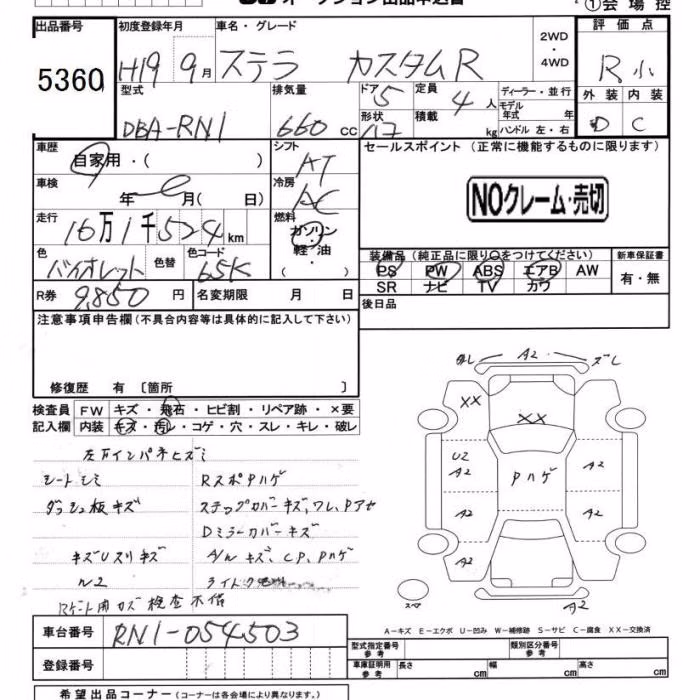 オークション出品申込書
①会場控
出品番号 初度登録年月 車名・グレード 2WD・4WD 評価点
5360 H19 9月 ステラ カスタムR R小
型式 排気量 ドア 5 定員 4人 ディーラー・並行 外装 内装
DBA-RN1 660cc 形状 積載 kg モデル年式 年 ハンドル 左・右 D C
車歴 シフト セールスポイント (正常に機能するものに限ります)
自家用・( ) AT
車検 年 月( 日) 冷房 AC NOクレーム・売切
走行 16万1千524km 燃料 ガソリン・軽・油
色 バイオレット 色替 色コード 65K ( )
装備品(純正品に限り○をつけてください) 新車保証書
PS PW ABS エアB AW 有・無
SR ナビ TV カワ
R券 9,850円 名変期限 月 日 後日品
注意事項申告欄(不具合内容等は具体的に記入して下さい)
修復歴 有 [箇所 ]
検査員 FW キズ・飛石・ヒビ割・リペア跡・×要
記入欄 内装 キズ・汚レ・コゲ・穴・スレ・キレ・破レ
シートシミ RスポPハゲ
ダッシュ板キズ ステップカバーキズ、ワレ、Pアセ
Dミラーカバーキズ
キズUスリキズ A/Wキズ、CP、Pハゲ
検査不備
A2 ズレ
XX XX
U2 A2 Pハゲ A2
A2 A2
A2 A2
スペア
A-キズ E-エクボ U-凹み W-補修跡 S-サビ C-腐食 XX-交換済
車台番号 RN1-054503
型式指定番号 参考 類別区分番号 参考
登録番号
車庫証明用 参考 長さ cm 幅 cm 高さ cm
希望出品コーナー(コーナーは各会場により異なります。)